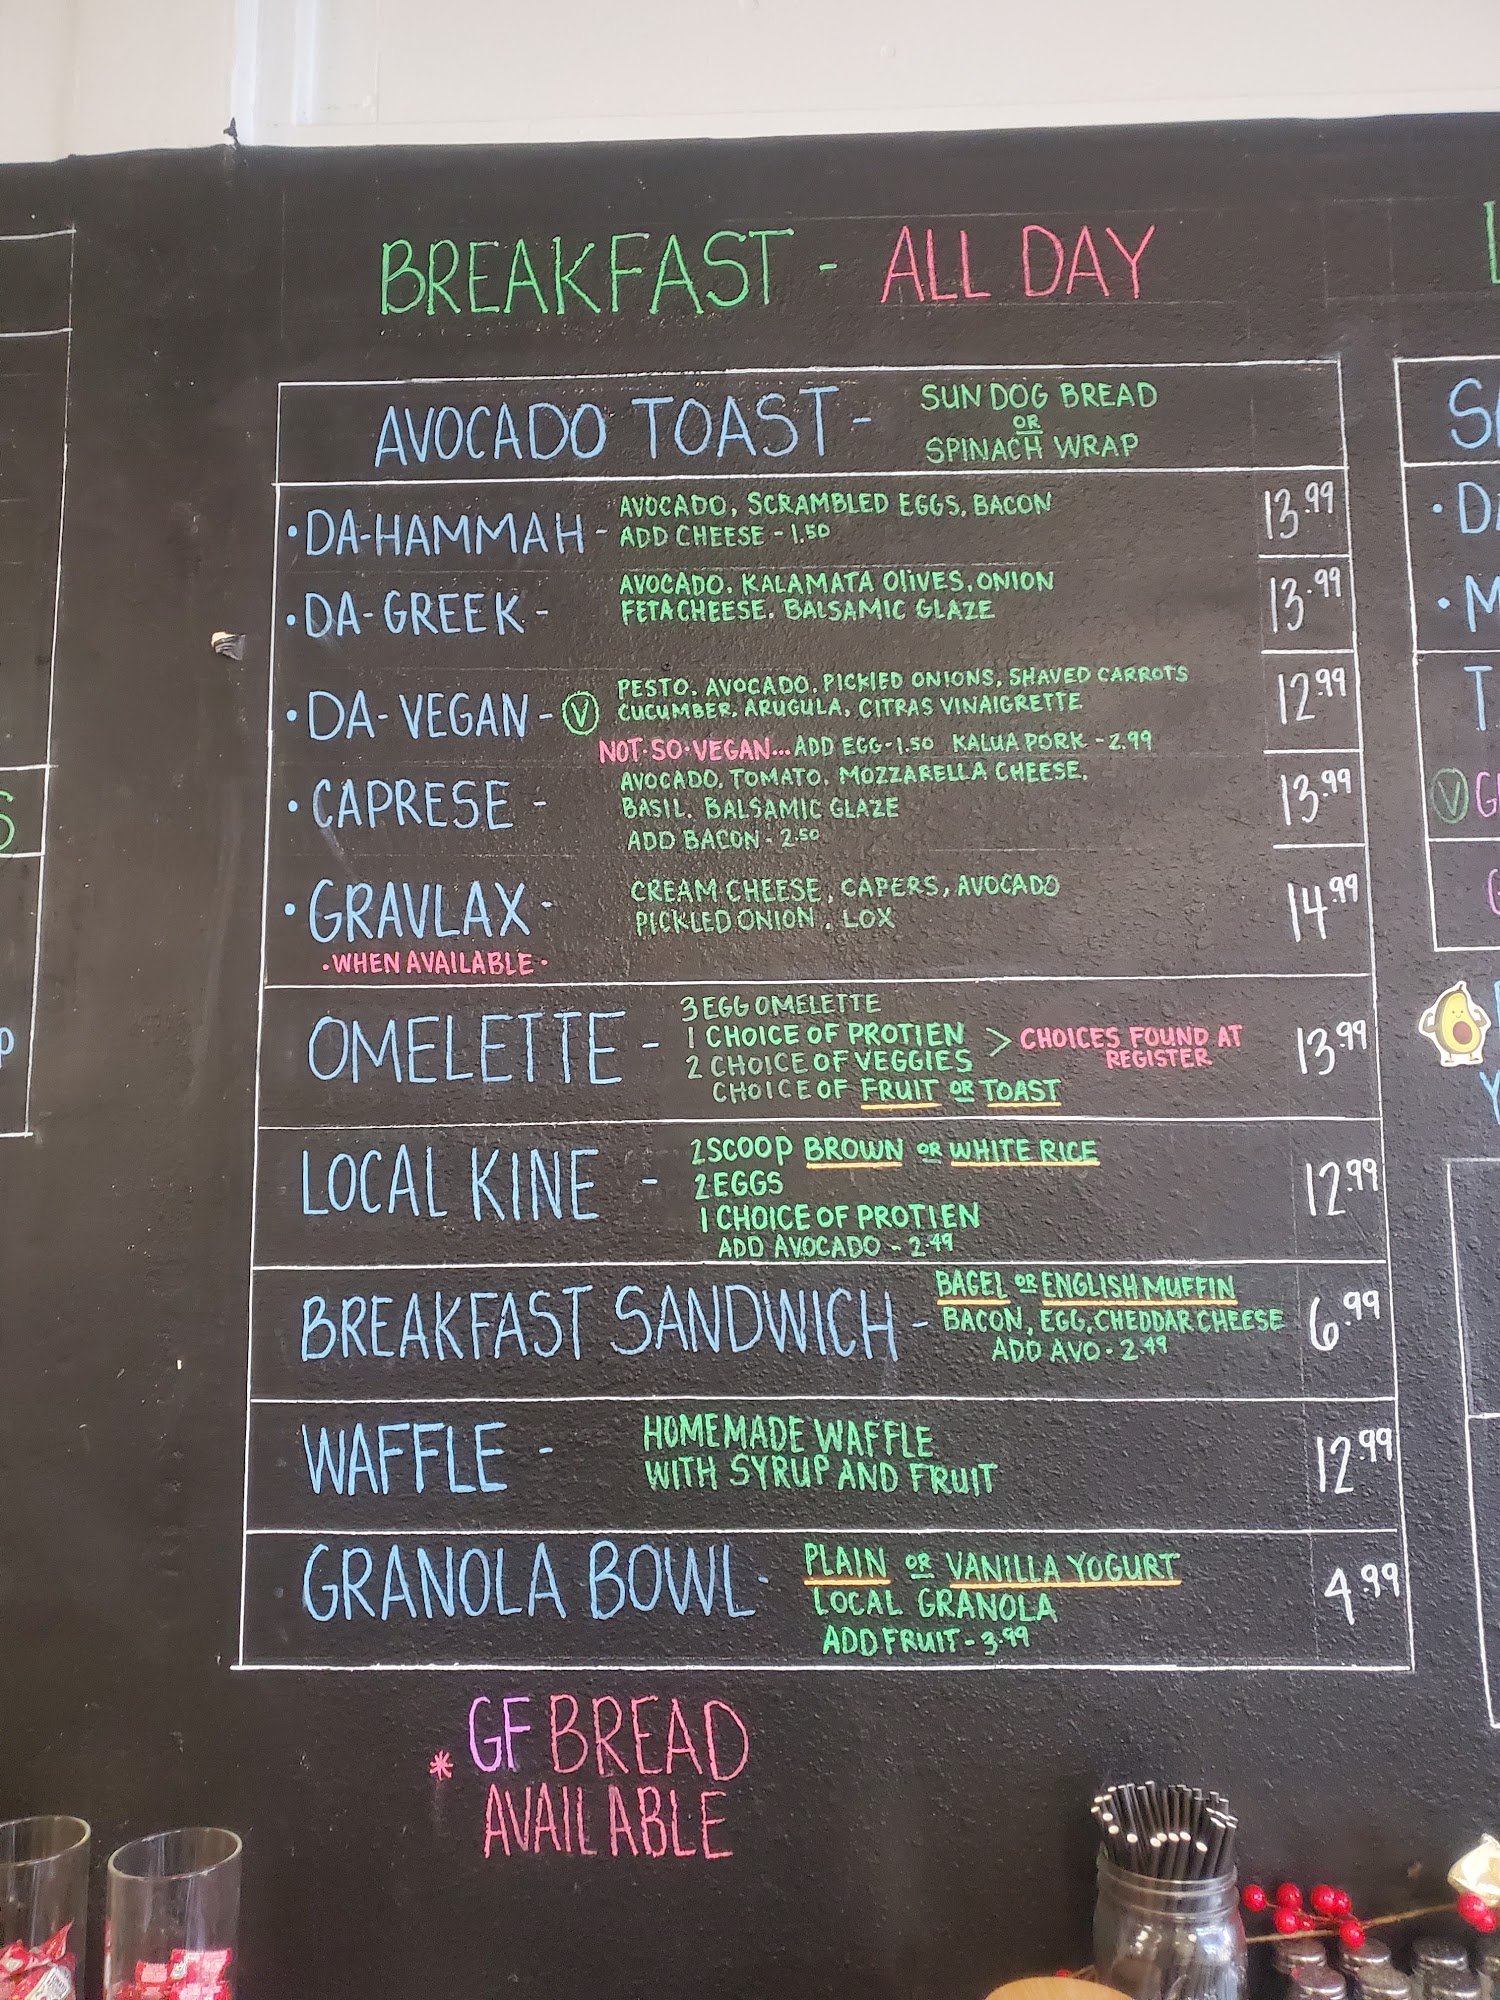 BREAKFAST - ALL DAY
AVOCADO TOAST -
SUN DOG BREAD
OR
SPINACH WRAP
• DA-HAMMAH -
AVOCADO, SCRAMBLED EGGS, BACON
ADD CHEESE - 1.50
13.99
• DA-GREEK -
AVOCADO, KALAMATA OLIVES, ONION
FETA CHEESE, BALSAMIC GLAZE
13.99
• DA-VEGAN - V
PESTO, AVOCADO, PICKIED ONIONS, SHAVED CARROTS
CUCUMBER, ARUGULA, CITRAS VINAIGRETTE
NOT·SO·VEGAN... ADD EGG-1.50 KALUA PORK - 2.99
12.99
• CAPRESE -
AVOCADO, TOMATO, MOZZARELLA CHEESE,
BASIL, BALSAMIC GLAZE
ADD BACON - 2.50
13.99
• GRAVLAX -
CREAM CHEESE, CAPERS, AVOCADO
PICKLED ONION, LOX
14.99
• WHEN AVAILABLE •
OMELETTE -
3 EGG OMELETTE
1 CHOICE OF PROTIEN
2 CHOICE OF VEGGIES
> CHOICES FOUND AT
REGISTER
CHOICE OF FRUIT OR TOAST
13.99
LOCAL KINE -
2 SCOOP BROWN OR WHITE RICE
2 EGGS
1 CHOICE OF PROTIEN
ADD AVOCADO - 2.49
12.99
BREAKFAST SANDWICH -
BAGEL OR ENGLISH MUFFIN
BACON, EGG, CHEDDAR CHEESE
ADD AVO - 2.49
6.99
WAFFLE -
HOMEMADE WAFFLE
WITH SYRUP AND FRUIT
12.99
GRANOLA BOWL -
PLAIN OR VANILLA YOGURT
LOCAL GRANOLA
ADD FRUIT - 3.99
4.99
* GF BREAD
AVAILABLE